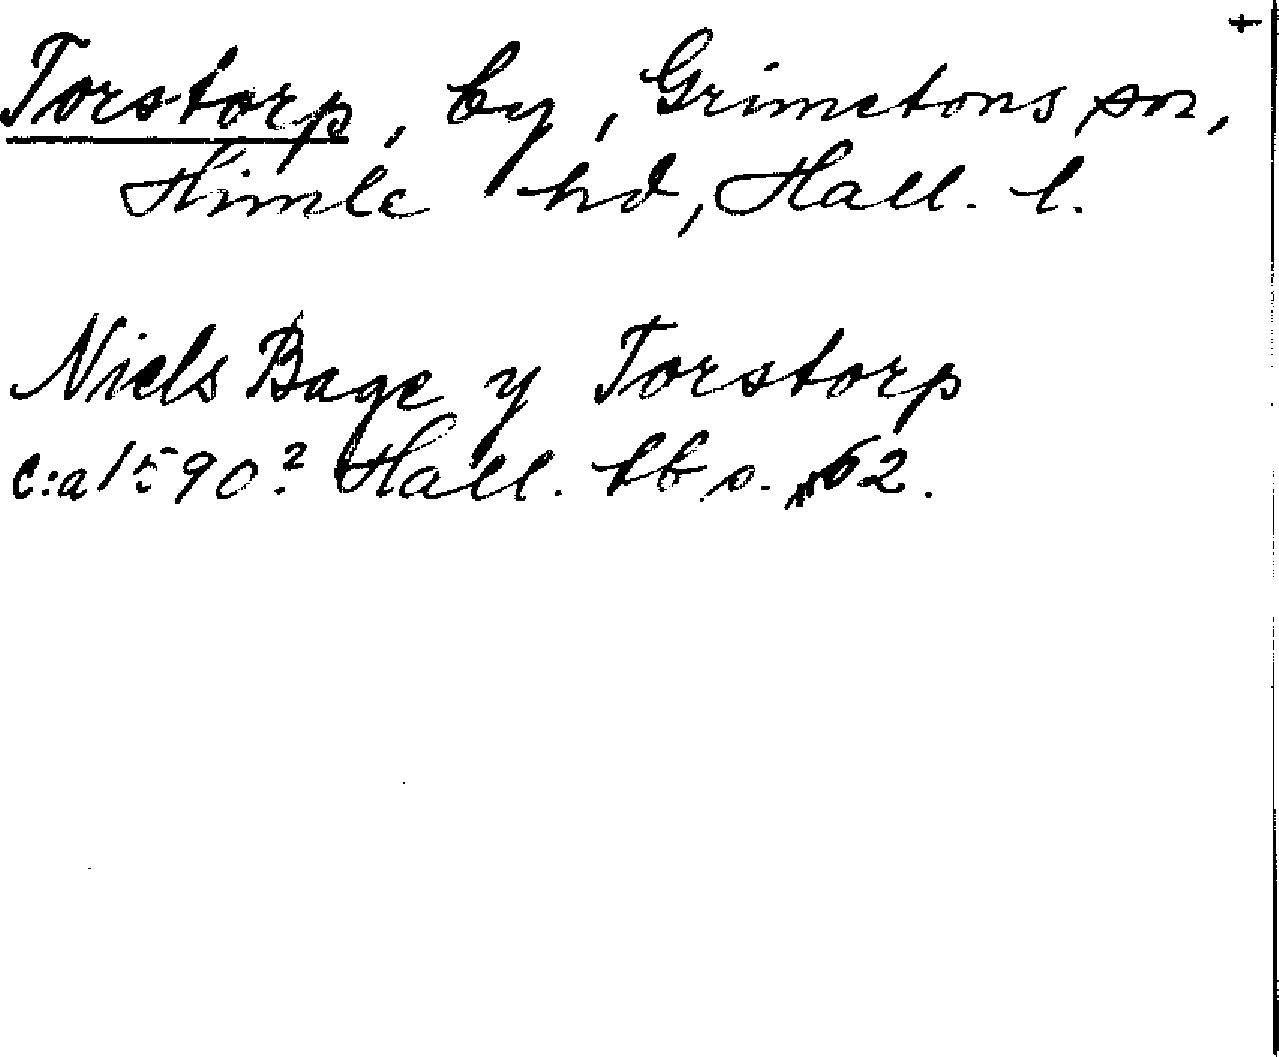 Torstorp, by, Grimetons sn,
Himle hd, Hall. l.
Niels Bage y Torstorp
c:a 1590? Hall. bb s. 62.